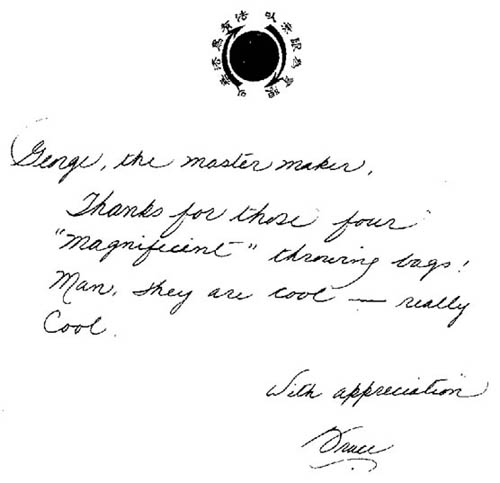 以無法為有法 以無限為有限
George, the master maker,
Thanks for those four
"magnificent" throwing bags!
Man, they are cool — really
Cool.
With appreciation
Bruce